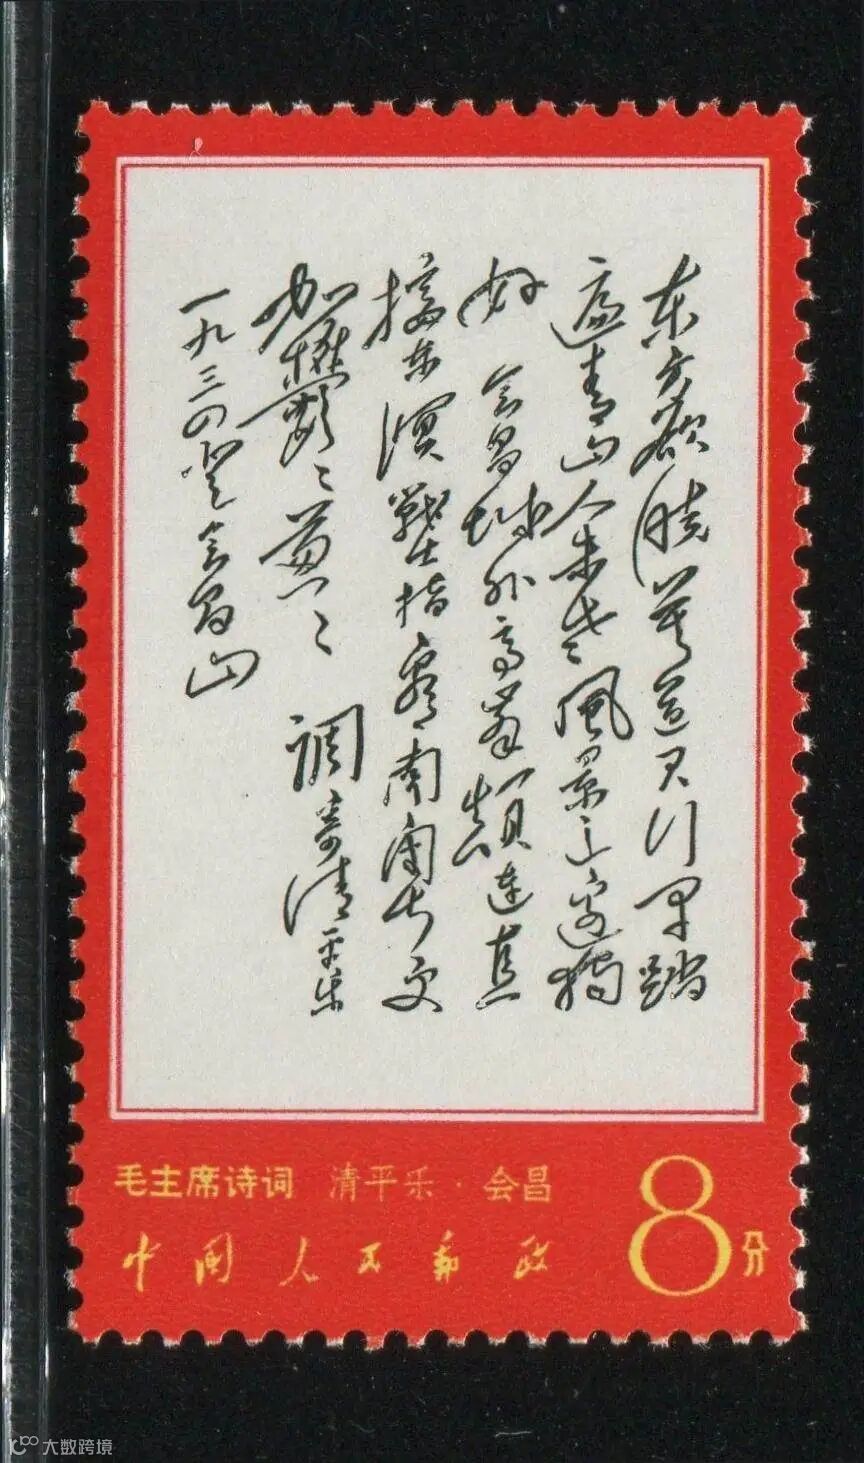 东方欲晓莫道君行早踏
遍青山人未老風景这边独
好 会昌城外高峰颠连直
接东溟戰士指看南粤更
加鬱〻葱〻 调寄清平乐
一九三四登会昌山
毛主席诗词 清平乐·会昌
中国人民邮政
8分
大数跨境